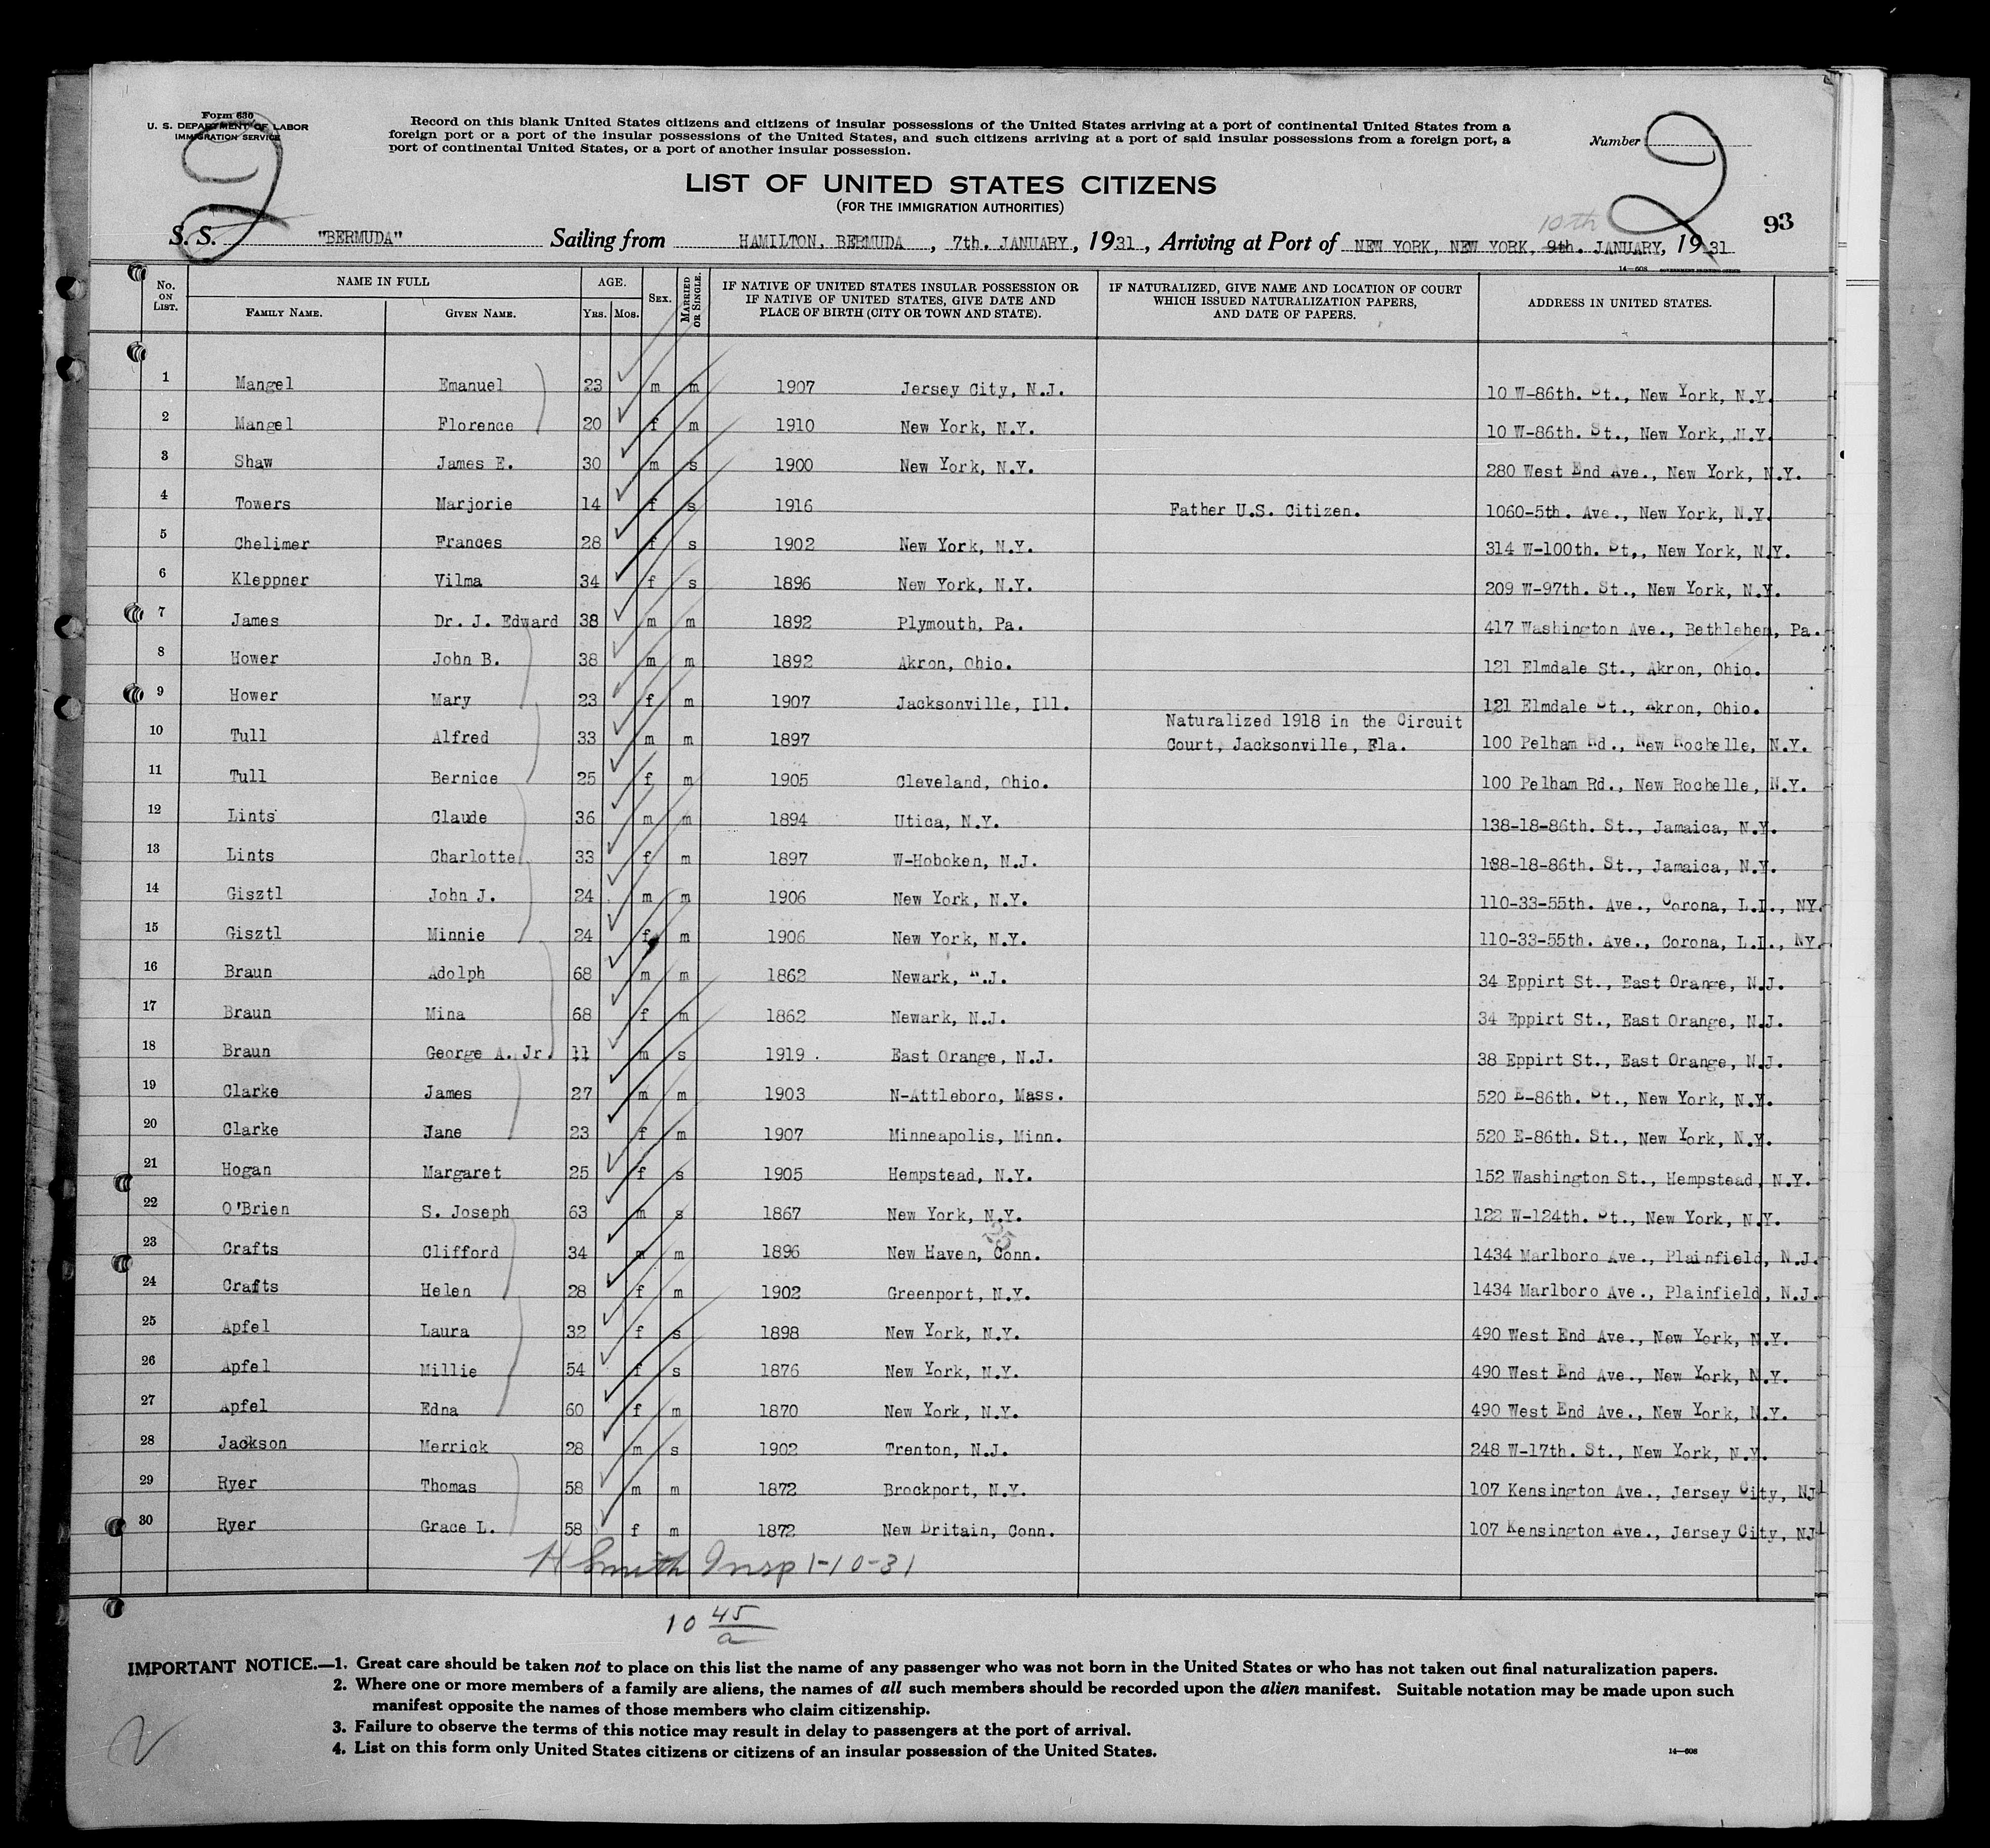 Form 630
U. S. DEPARTMENT OF LABOR
IMMIGRATION SERVICE
2
Record on this blank United States citizens and citizens of insular possessions of the United States arriving at a port of continental United States from a
foreign port or a port of the insular possessions of the United States, and such citizens arriving at a port of said insular possessions from a foreign port, a
port of continental United States, or a port of another insular possession.
Number 2
LIST OF UNITED STATES CITIZENS
(FOR THE IMMIGRATION AUTHORITIES)
93
10th
S. S. "BERMUDA" Sailing from HAMILTON, BERMUDA, 7th. JANUARY, 1931, Arriving at Port of NEW YORK, NEW YORK, 9th. JANUARY, 1931
14—608 GOVERNMENT PRINTING OFFICE
No. ON LIST. NAME IN FULL FAMILY NAME. GIVEN NAME. AGE. YRS. MOS. SEX. MARRIED OR SINGLE. IF NATIVE OF UNITED STATES INSULAR POSSESSION OR IF NATIVE OF UNITED STATES, GIVE DATE AND PLACE OF BIRTH (CITY OR TOWN AND STATE). IF NATURALIZED, GIVE NAME AND LOCATION OF COURT WHICH ISSUED NATURALIZATION PAPERS, AND DATE OF PAPERS. ADDRESS IN UNITED STATES.
1 Mangel Emanuel 23 m m 1907 Jersey City, N.J. 10 W-86th. St., New York, N.Y.
2 Mangel Florence 20 f m 1910 New York, N.Y. 10 W-86th. St., New York, N.Y.
3 Shaw James E. 30 m s 1900 New York, N.Y. 280 West End Ave., New York, N.Y.
4 Towers Marjorie 14 f s 1916 Father U.S. Citizen. 1060-5th. Ave., New York, N.Y.
5 Chelimer Frances 28 f s 1902 New York, N.Y. 314 W-100th. St,, New York, N.Y.
6 Kleppner Vilma 34 f s 1896 New York, N.Y. 209 W-97th. St., New York, N.Y.
7 James Dr. J. Edward 38 m m 1892 Plymouth, Pa. 417 Washington Ave., Bethlehem, Pa.
8 Hower John B. 38 m m 1892 Akron, Ohio. 121 Elmdale St., Akron, Ohio.
9 Hower Mary 23 f m 1907 Jacksonville, Ill. 121 Elmdale St., Akron, Ohio.
10 Tull Alfred 33 m m 1897 Naturalized 1918 in the Circuit Court, Jacksonville, Fla. 100 Pelham Rd., New Rochelle, N.Y.
11 Tull Bernice 25 f m 1905 Cleveland, Ohio. 100 Pelham Rd., New Rochelle, N.Y.
12 Lints Claude 36 m m 1894 Utica, N.Y. 138-18-86th. St., Jamaica, N.Y.
13 Lints Charlotte 33 f m 1897 W-Hoboken, N.J. 138-18-86th. St., Jamaica, N.Y.
14 Gisztl John J. 24 m m 1906 New York, N.Y. 110-33-55th. Ave., Corona, L.I., NY.
15 Gisztl Minnie 24 f m 1906 New York, N.Y. 110-33-55th. Ave., Corona, L.I., NY.
16 Braun Adolph 68 m m 1862 Newark, N.J. 34 Eppirt St., East Orange, N.J.
17 Braun Mina 68 f m 1862 Newark, N.J. 34 Eppirt St., East Orange, N.J.
18 Braun George A. Jr. 11 m s 1919 East Orange, N.J. 38 Eppirt St., East Orange, N.J.
19 Clarke James 27 m m 1903 N-Attleboro, Mass. 520 E-86th. St., New York, N.Y.
20 Clarke Jane 23 f m 1907 Minneapolis, Minn. 520 E-86th. St., New York, N.Y.
21 Hogan Margaret 25 f s 1905 Hempstead, N.Y. 152 Washington St., Hempstead, N.Y.
22 O'Brien S. Joseph 63 m s 1867 New York, N.Y. 122 W-124th. St., New York, N.Y.
23 Crafts Clifford 34 m m 1896 New Haven, Conn. 1434 Marlboro Ave., Plainfield, N.J.
24 Crafts Helen 28 f m 1902 Greenport, N.Y. 1434 Marlboro Ave., Plainfield, N.J.
25 Apfel Laura 32 f s 1898 New York, N.Y. 490 West End Ave., New York, N.Y.
26 Apfel Millie 54 f s 1876 New York, N.Y. 490 West End Ave., New York, N.Y.
27 Apfel Edna 60 f m 1870 New York, N.Y. 490 West End Ave., New York, N.Y.
28 Jackson Merrick 28 m s 1902 Trenton, N.J. 248 W-17th. St., New York, N.Y.
29 Ryer Thomas 58 m m 1872 Brockport, N.Y. 107 Kensington Ave., Jersey City, NJ
30 Ryer Grace L. 58 f m 1872 New Britain, Conn. 107 Kensington Ave., Jersey City, NJ
H Smith Insp 1-10-31
10 45/a
IMPORTANT NOTICE.—1. Great care should be taken not to place on this list the name of any passenger who was not born in the United States or who has not taken out final naturalization papers.
2. Where one or more members of a family are aliens, the names of all such members should be recorded upon the alien manifest. Suitable notation may be made upon such
manifest opposite the names of those members who claim citizenship.
3. Failure to observe the terms of this notice may result in delay to passengers at the port of arrival.
4. List on this form only United States citizens or citizens of an insular possession of the United States.
14—608